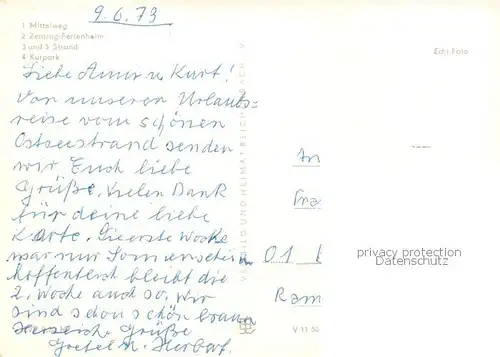 9.6.73
1 Mittelweg
2 Zentrag-Ferienheim
3 und 5 Strand
4 Kurpark
Echt Foto
Liebe Anne u. Kurt!
Von unseren Urlaubs=
reise vom schönen
Ostseestrand senden
wir Euch liebe
Grüße. Vielen Dank
für deine liebe
Karte. Die erste Woche
war nur Sonnenschein
hoffentlich bleibt die
2. Woche auch so. Wir
sind schon schön braun
Herzliche Grüße
Gretel u. Herbert.
VERLAG BILD UND HEIMAT REICHENBACH I. V.
An
Fra
01
Ram
privacy protection
Datenschutz
V 11 50